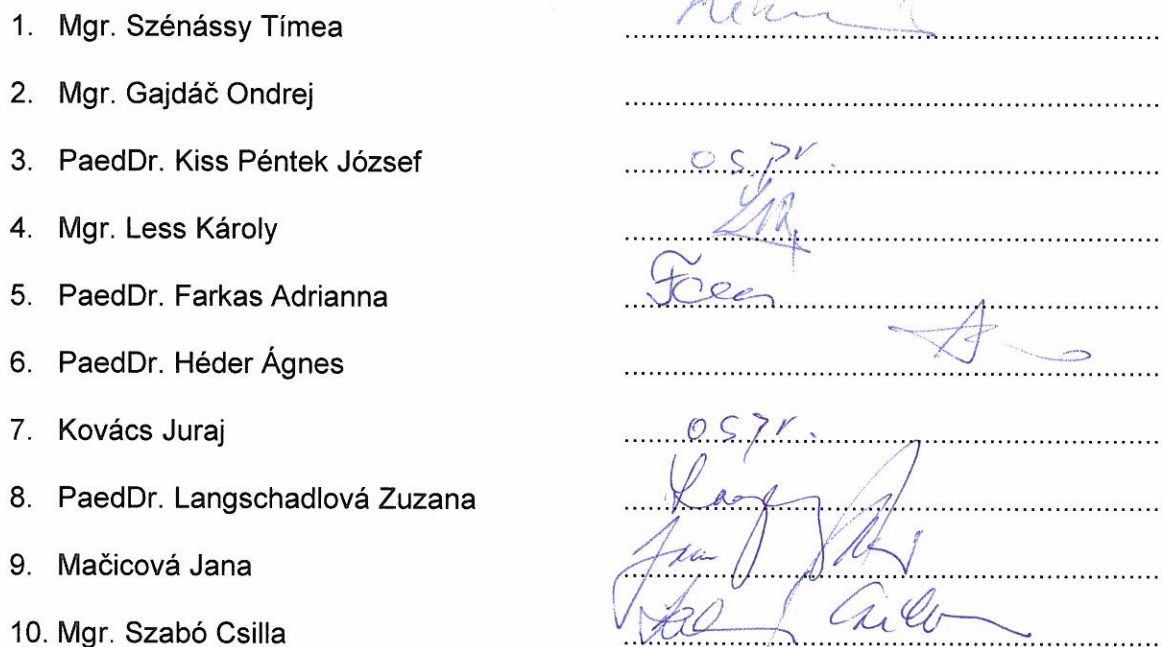 1. Mgr. Szénássy Tímea
2. Mgr. Gajdáč Ondrej
3. PaedDr. Kiss Péntek József ospr.
4. Mgr. Less Károly
5. PaedDr. Farkas Adrianna
6. PaedDr. Héder Ágnes
7. Kovács Juraj ospr.
8. PaedDr. Langschadlová Zuzana
9. Mačicová Jana
10. Mgr. Szabó Csilla